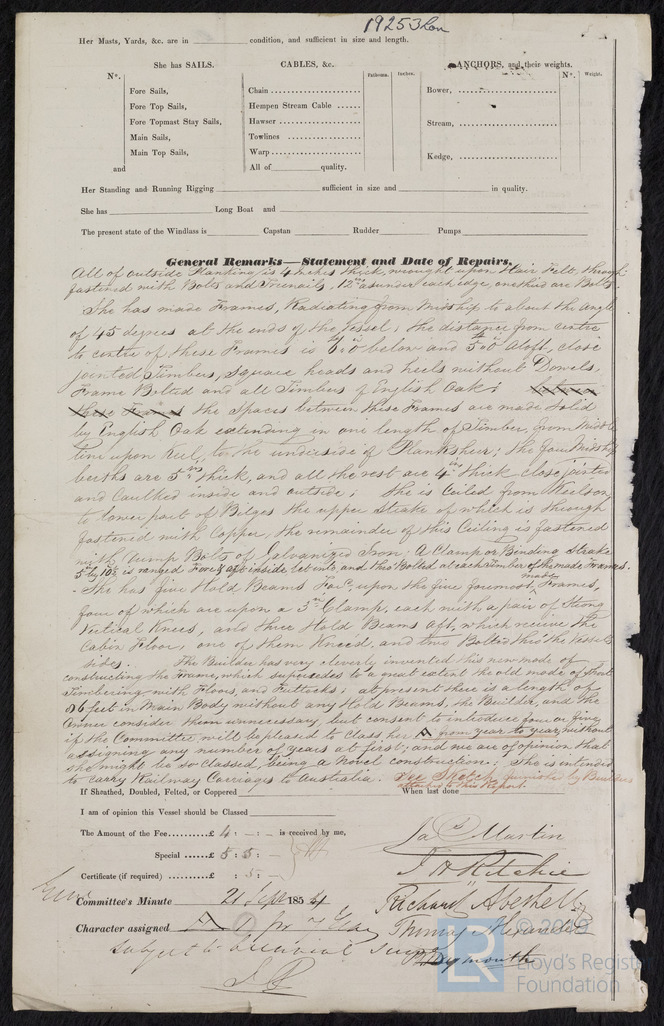 19253 Lon
Her Masts, Yards, &c. are in condition, and sufficient in size and length.
She has SAILS. CABLES, &c. ANCHORS, and their weights.
N°. Fathoms. Inches. N°. Weight.
Fore Sails, Chain Bower,
Fore Top Sails, Hempen Stream Cable
Fore Topmast Stay Sails, Hawser Stream,
Main Sails, Towlines
Main Top Sails, Warp Kedge,
and All of quality.
Her Standing and Running Rigging sufficient in size and in quality.
She has Long Boat and
The present state of the Windlass is Capstan Rudder Pumps
General Remarks—Statement and Date of Repairs.
All of outside Planking is 4 inches thick, wrought upon Hair Felt, through
fastened with Bolts and Trenails, 12 in asunder each edge, one third are Bolts
She has made Frames, Radiating from Midship to about the angle
of 45 degrees at the ends of the Vessel; the distance from centre
to centre of these Frames is below and aloft, close
jointed Timbers, Square heads and heels without Dowels,
Frame Bolted and all Timbers of English Oak;
these Frames the spaces between these Frames are made solid
by English Oak extending in one length of Timber, from Middle
line upon keel, to the underside of Planksheer; the four Midship
berths are 5 ins thick, and all the rest are 4 ins thick close jointed
and caulked inside and outside; She is Ceiled from Keelson
to lower part of Bilges the upper Strake of which is through
fastened with Copper, the remainder of this Ceiling is fastened
with Dump Bolts of Galvanized Iron; A Clamp or Binding Strake
is ranged Fore & aft inside and thro' Bolted at each Timber of the made Frames.
She has five Hold Beams For'd upon the five foremost made Frames,
four of which are upon a 3 in Clamp, each with a pair of Strong
Vertical Knees, and three Hold Beams aft, which receive the
Cabin Floor; one of them Kneed, and two Bolted thro' the Vessels
sides. The Builder has very cleverly invented this new mode of
constructing the Frame, which supersedes to a great extent the old mode of
Timbering with Floors, and Futtocks; at present there is a length of
26 feet in Main Body without any Hold Beams, the Builder, and the
Owner consider them unnecessary, but consent to introduce four or five
if the Committee will be pleased to class her A from year to year, without
assigning any number of years at first; and we are of opinion that
she might be so classed, being a Novel construction; She is intended
to carry Railway Carriages to Australia: See Sketch furnished by Builder
attached to this Report.
If Sheathed, Doubled, Felted, or Coppered When last done
I am of opinion this Vessel should be Classed
The Amount of the Fee £ 4 : - : - is received by me, Jas Martin
Special £ 5 : 5 : -
Certificate (if required) £ : 5 : - J H Ritchie
Committee's Minute 21 Sept 1854 Richard Abethell
Character assigned A 1 for 1 Year Thomas Alexander
subject to Weymouth
© 2019
LR
Lloyd's Register
Foundation